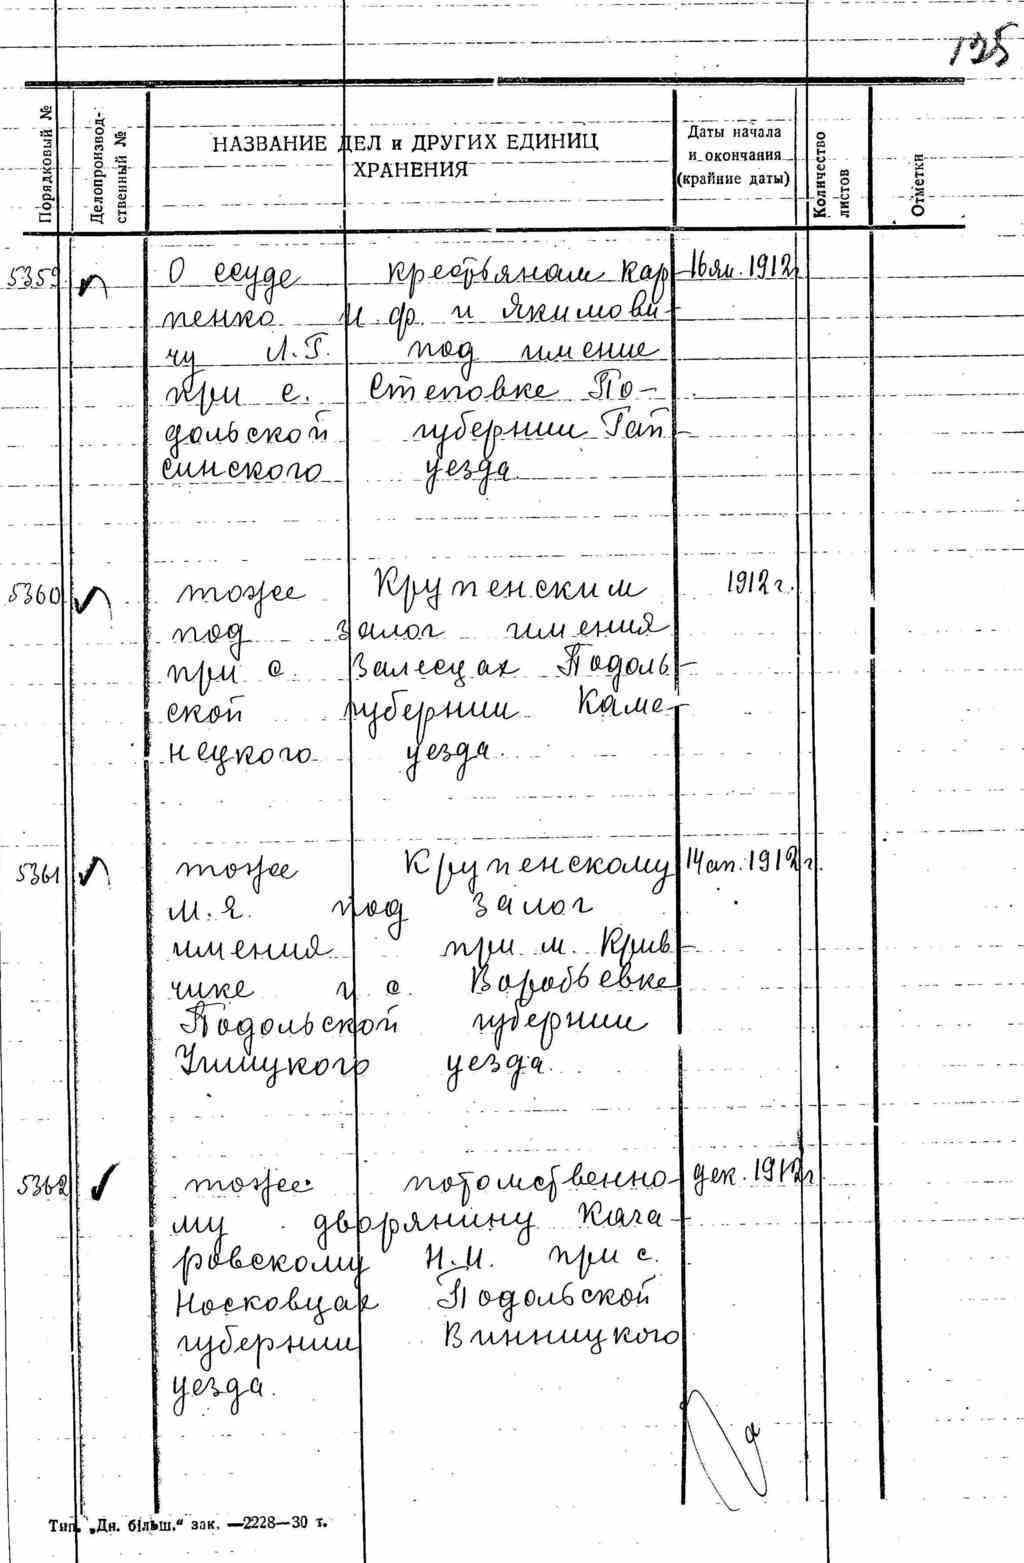 125
Порядковый №
Делопроизвод-
ственный №
НАЗВАНИЕ ДЕЛ и ДРУГИХ ЕДИНИЦ
ХРАНЕНИЯ
Даты начала
и окончания
(крайние даты)
Количество
листов
Отметки
5359 О ссуде крестьянам Кар- 16 ян. 1912г
пенко И.Ф. и Якимови-
чу Л.Г. под имение
при с. Степовке По-
дольской губернии Гай-
синского уезда.
5360 тоже Крупенским 1912 г.
под залог имения
при с. Залесцах Подоль-
ской губернии Каме-
нецкого уезда.
5361 тоже Крупенскому 14 ап. 1912 г.
М.Я. под залог
имения при м. Крив-
чике и с. Воробьевке
Подольской губернии
Ушицкого уезда.
5362 тоже потомственно- дек. 1912 г
му дворянину Кага-
ровскому Н.И. при с.
Носковцах Подольской
губернии Винницкого
уезда.
Тип. „Дн. більш.“ зак. —2228—30 т.